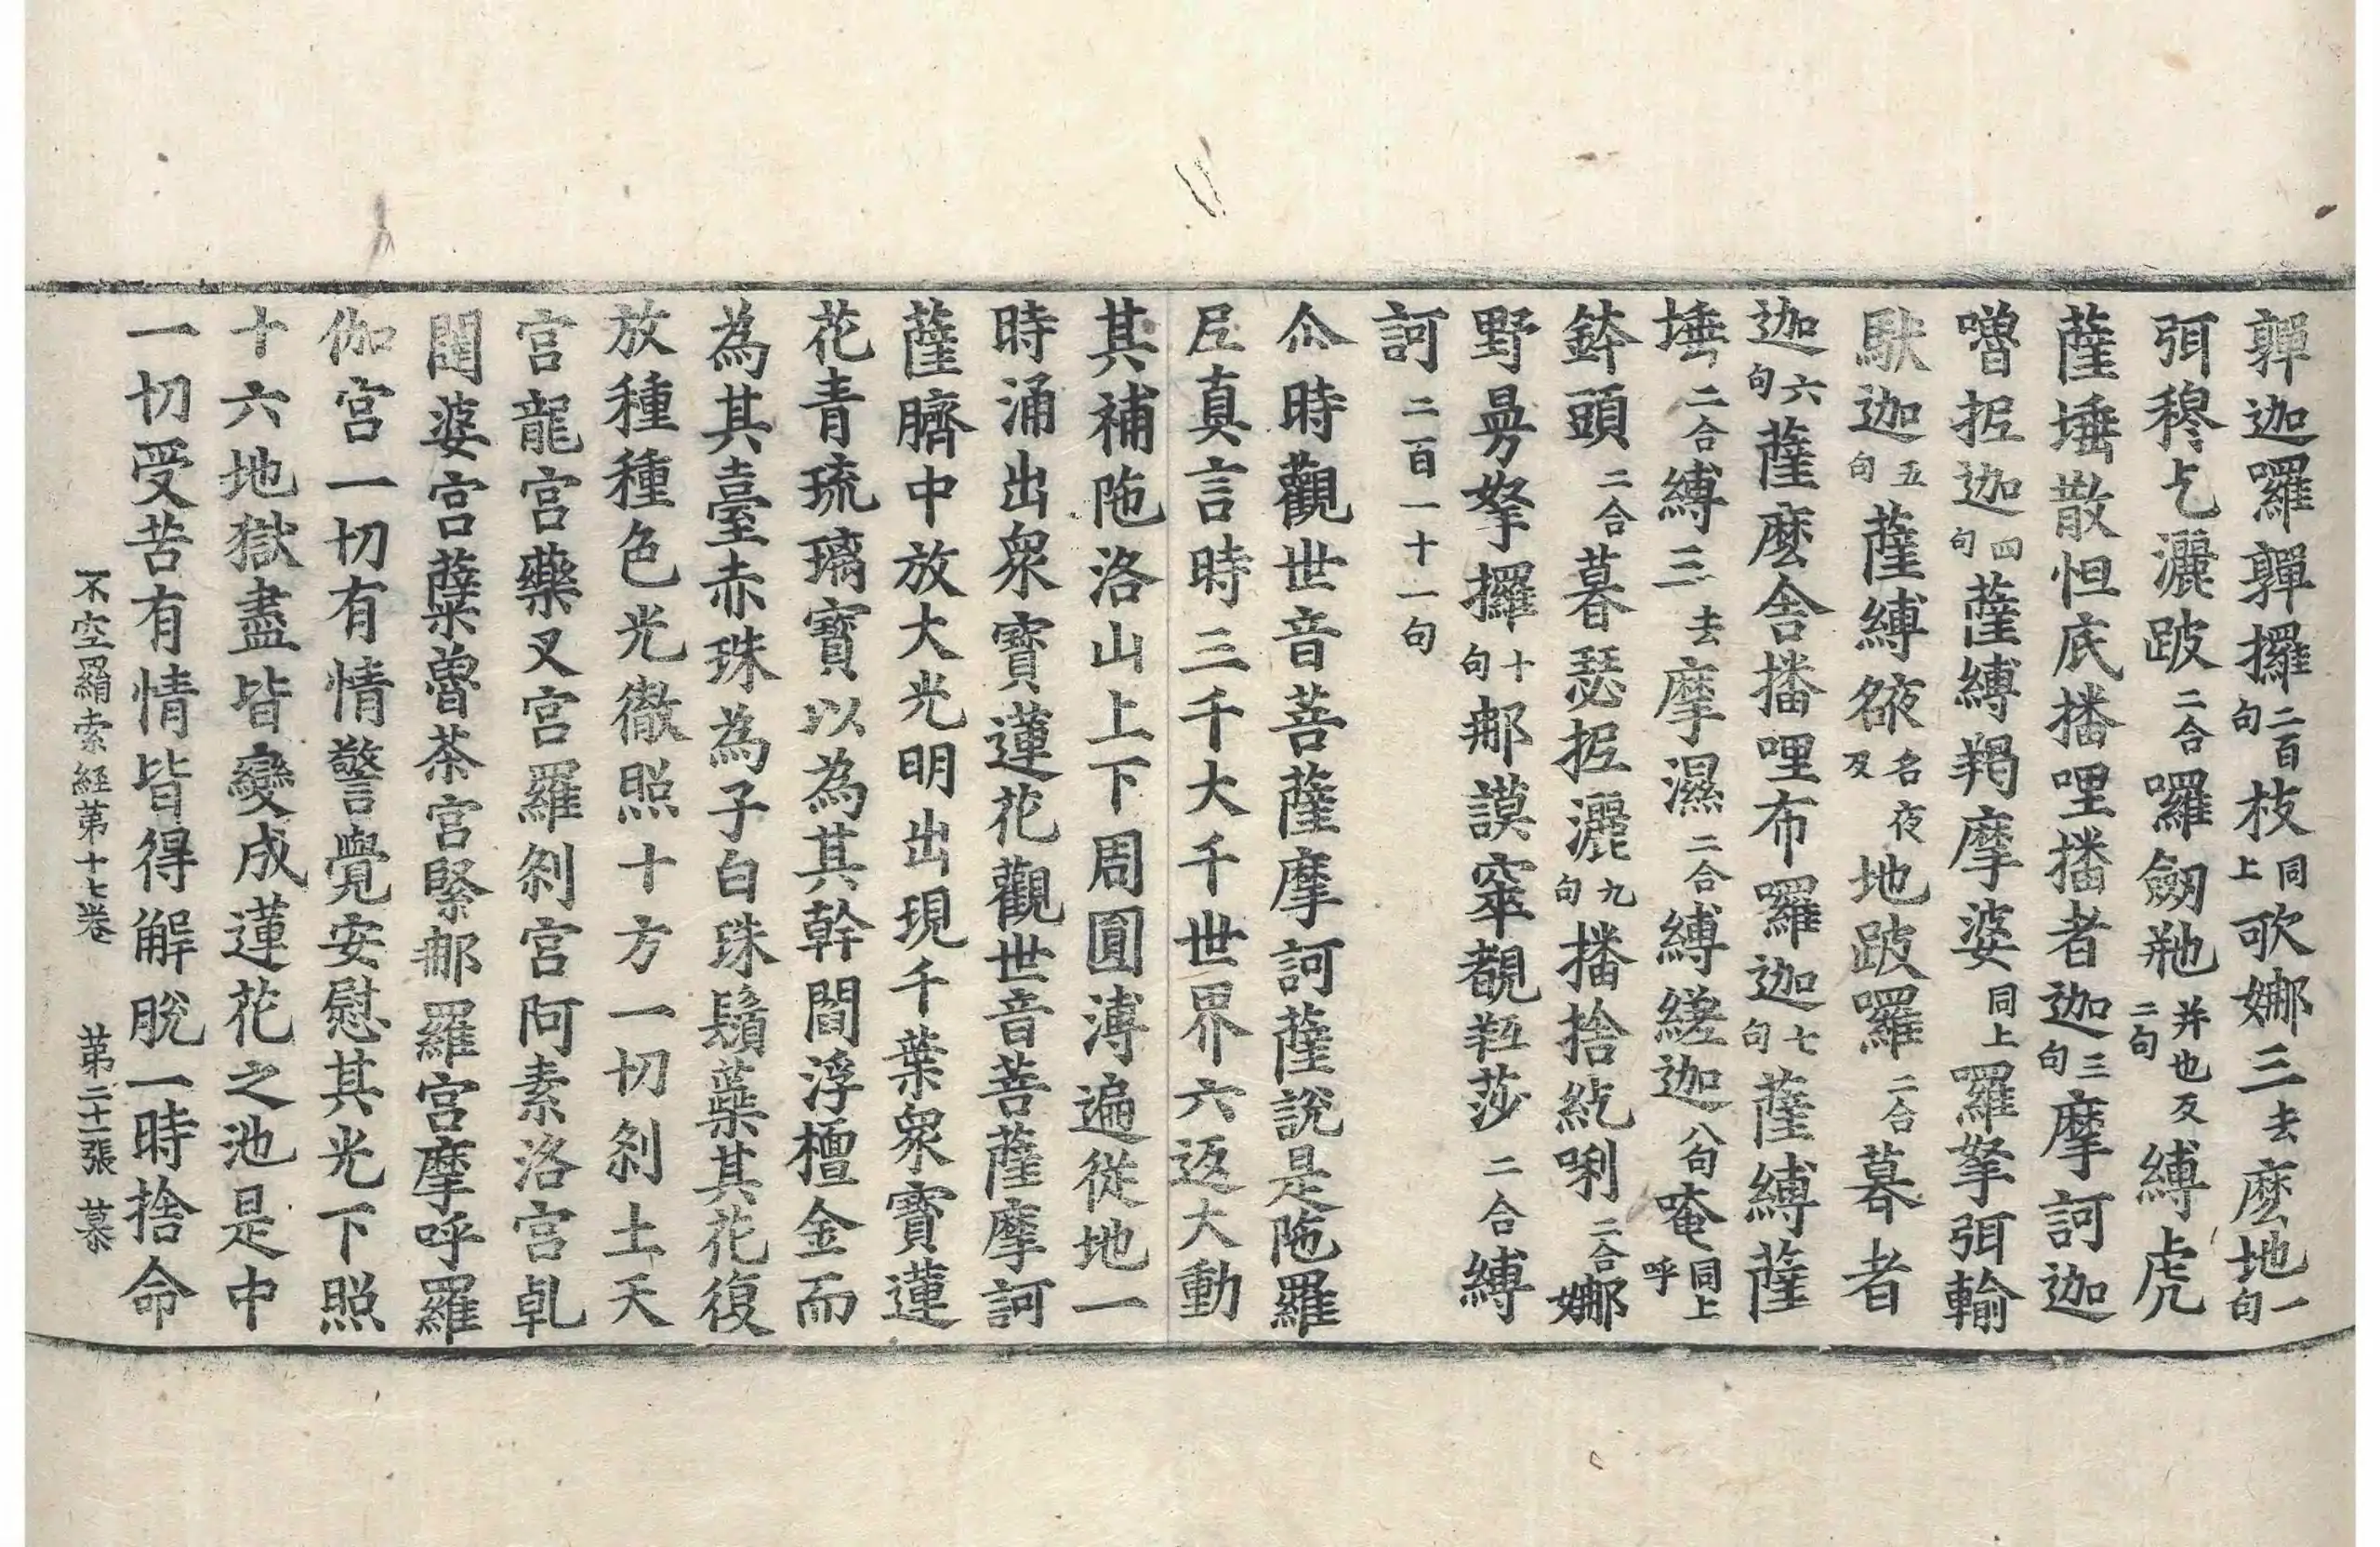 㔶迦囉㔶攞二百句枝同上歌娜三去麼地一句
弭穆乞灑跛二合囉劒𦚢并也反二句縛虎
薩埵散怛底播哩播者迦三句摩訶迦
噜抳迦四句薩縛羯摩婆同上羅拏弭輸
馱迦五句薩縛䘸名夜反地跛囉二合暮者
迦六句薩麼舍播哩布囉迦七句薩縛薩
埵二合縛三去摩濕二合縛縒迦八句唵同上呼
鉢頭二合暮瑟抳灑九句播捨紇唎二合娜
野曼拏攞十句那謨窣覩㹟莎二合縛
訶二百一十一句
尒時觀世音菩薩摩訶薩說是陁羅
𡰱真言時三千大千世界六返大動
其補陁洛山上下周圓溥遍從地一
時涌出衆寶蓮花觀世音菩薩摩訶
薩臍中放大光明出現千葉衆寶蓮
花青琉璃寶以為其幹閻浮檀金而
為其臺赤珠為子白珠鬚蘂其花復
放種種色光徹照十方一切刹土天
宮龍宮藥叉宮羅刹宮阿素洛宮乹
闥婆宮蘖魯荼宮緊那羅宮摩呼羅
伽宮一切有情警覺安慰其光下照
十六地獄盡皆變成蓮花之池是中
一切受苦有情皆得解脫一時捨命
不空羂索経苐十七卷 苐二十一張 慕